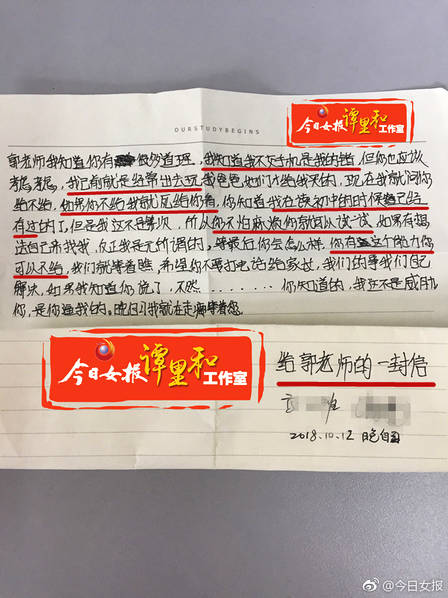 OURSTUDYBEGINS
今日女报 谭里和 工作室
郭老师我知道你有很多道理，我知道我不交手机是我的错，但你也应该
考虑考虑，我已前就是经常出去玩，我爸爸她们才给我买的，现在我就问你
给不给，如果你不给我就死给你看，你知道我在读初中的时候自己给
有过的了，但是我这不是第一次，所以你不怕麻烦你就可以试一试，如果有想
法自己来找我，反正我是无所谓的，看最后你会怎么样，你有这个能力你
可以不给，我们就等着瞧，希望你不要打电话给家长，我们的事我们自己
解决，如果我知道你说了，不然………你知道的，我这不是威胁
你，是你逼我的。晚自习我就在走廊等着您。
今日女报 谭里和 工作室
给郭老师的一封信
班
2018.10.12
@今日女报